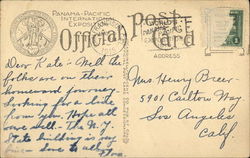 PANAMA-PACIFIC
INTERNATIONAL
EXPOSITION
Official Post Card
ADDRESS
Dear Kate:- Well the
folks are on their
homeward journey.
Looking for a line
from you. Hope all
are well. The N.Y.
State building is very
fine. Love to all
Mrs. Henry Breer
5901 Carlton Way
Los Angeles
Calif.